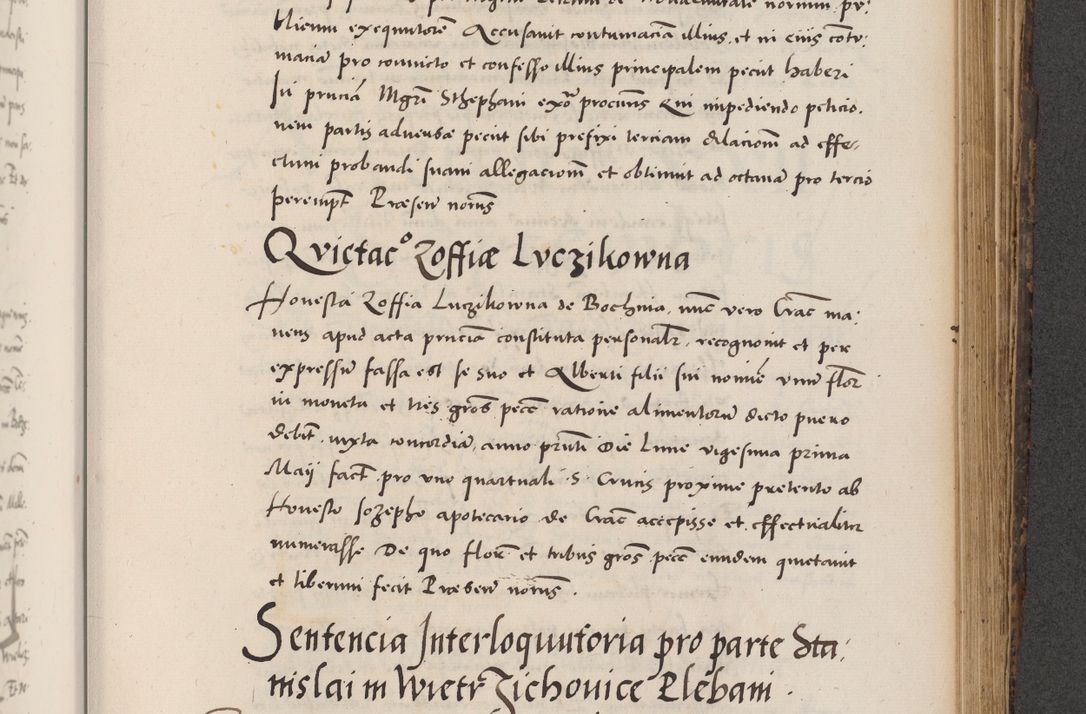 blicum exequutorem Accusavit contumaciã illius et in eius contu:
maciã pro convicto et confesso illius principalem peciit haberi
In pñciã Mgrĩ Sthephani ex õ procuris Qui impediendo peticio.
nem partis adversæ peciit sibi prefixi terciam dilacionẽ ad effe,
ctum probandi suam allegacionẽ et obtinuit ad octavã pro tercio
perempt Præsen norus
Qvietacº Zoffiæ Lvczikowna
Honesta Zoffia Luczikowna de Bochnia, nũc vero Crac ma:
nens apud acta pñciã constituta personalr, recognovit et per
expressũ fassa est se suo et Alberti filii sui nomie unũ flor
in moneta et tres gros pecẽ ratione alimentorũ dicto puero
debit iuxta concordiã, anno prñti Die Lune vigesima prima
Maij fact pro uno quartuali S. Crucis proxime pretento ab
Honesto Jozepho apotecario de Crac accepisse et effectualiter
numerasse De quo flore et tribus gros pecẽ eundem quietavit
et liberum fecit Præsen norus.
Sentencia Interloquutoria pro parte Sta:
nislai in Wietrzichovice Plebani .